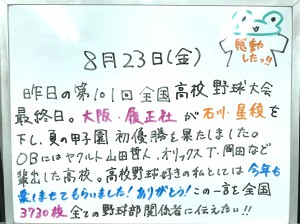 感動
したっ!!
8月23日(金)
昨日の第101回全国高校野球大会
最終日。大阪・履正社が石川・星稜を
下し、夏の甲子園初優勝を果たしました。
OBにはヤクルト山田哲人、オリックスT-岡田など
輩出した高校。高校野球好きの私としては今年も
楽しませてもらいました!ありがとう!この一言を全国
3730校全ての野球部関係者に伝えたい!!